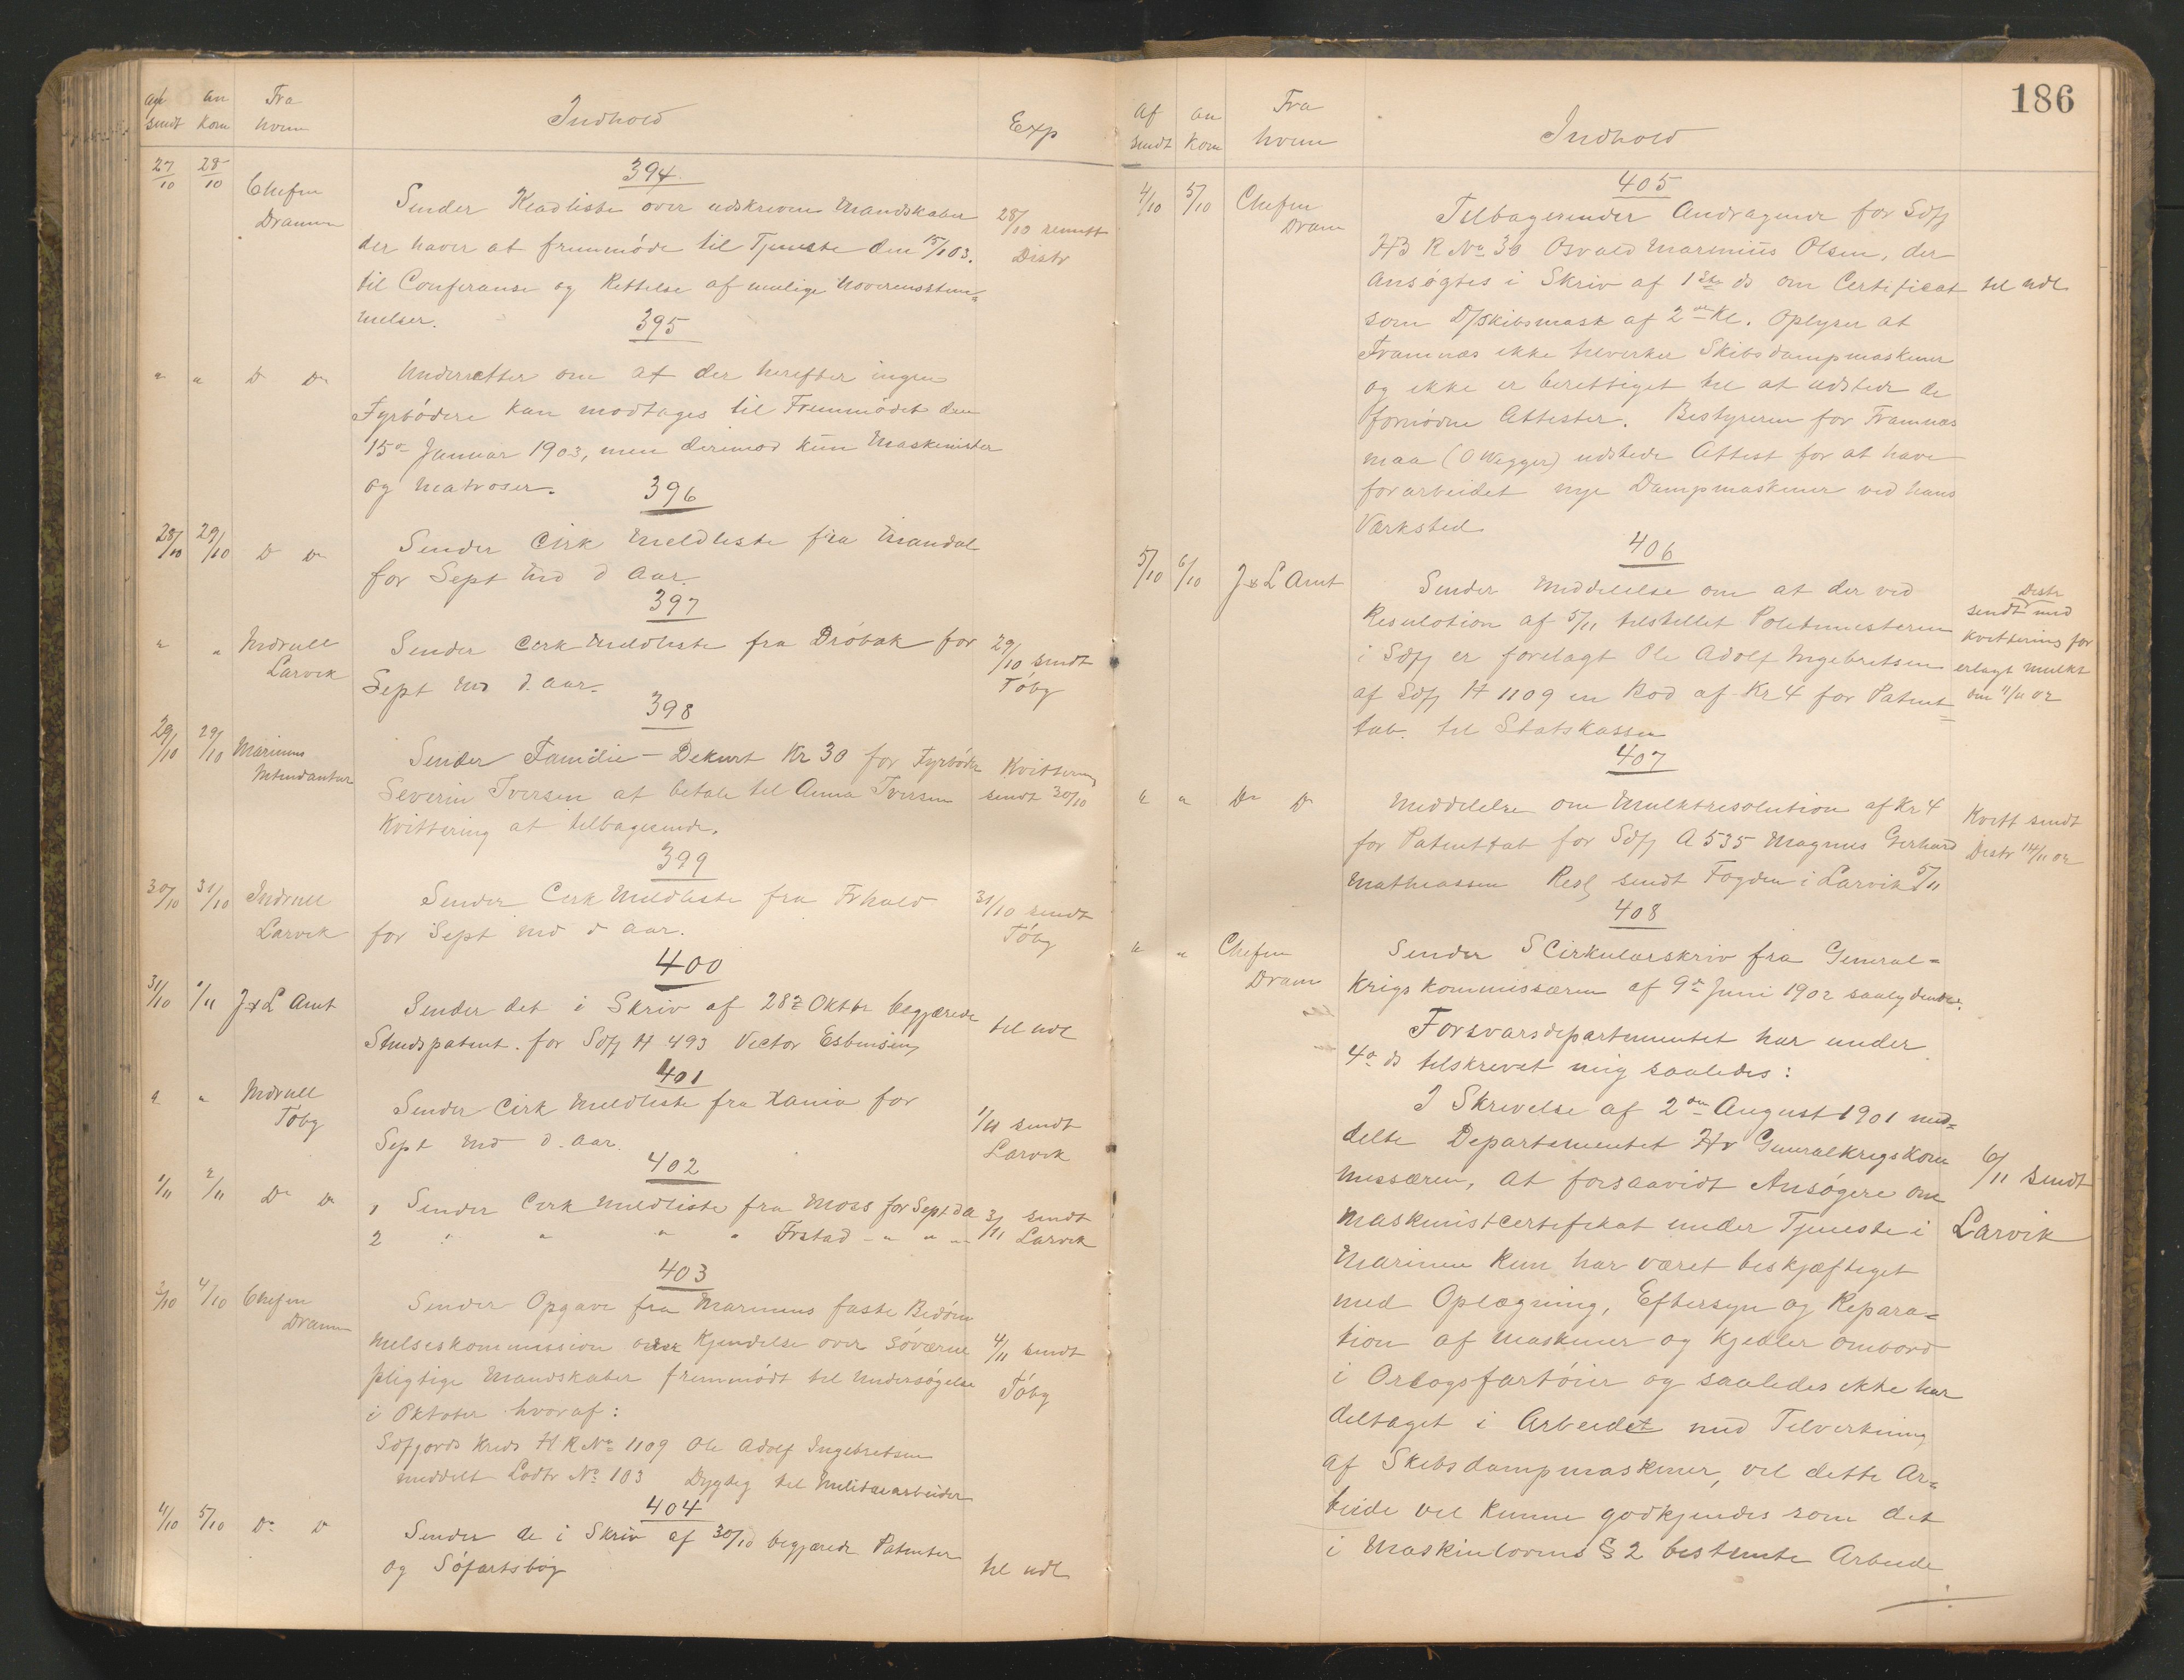 af an Fra
sendt kom hvem Indhold Exp
394
27/10 28/10 Chefen Sender Kladliste over udskrevne Mandskaber 28/10
Drammen der haver at fremmøde til Tjeneste den 15/1 03. Distr
til Conferanse og Rettelse af mulige Uoverensstem-
melser.
395
" " D Do Underretter om at der herefter ingen
Fyrbødere kan modtages til Fremmødet den
15de Januar 1903, men derimod kun Maskinister
og Matroser.
396
28/10 29/10 D Do Sender Cirk Meldliste fra Mandal
for Sept Md d Aar.
397
" " Indrull Sender Cirk Meldliste fra Drøbak for 29/10 sendt
Larvik Sept Md d. Aar. Tøbg
398
29/10 29/10 Marinens Sender Familie-Dekurt Kr 30 for Fyrbøder Kvittering
Intendantur Severin Iversen at betale til Anna Iversen sendt 30/10
Kvittering at tilbagesende.
399
30/10 31/10 Indrull Sender Cirk Meldliste fra Frhald 31/10 sendt
Larvik for Sept Md d Aar. Tøbg
400
31/10 1/11 J & L Amt Sender det i Skriv af 28de Oktbr begjærede til udl
Skudspatent. for Sdfj H 493 Victor Esbensen
401
" " Indrull Sender Cirk Meldliste fra Xania for 1/11 sendt
Tøbg Sept Md d. Aar. Larvik
402
1/11 2/11 Do Do 1 Sender Cirk Meldliste fra Moss for Sept d A 3/11 sendt
2 " " " " Frstad - " " - Larvik
403
3/10 4/10 Chefen Sender Opgave fra Marinens faste Bedøm
Dramm melseskommission over Kjendelse over Søværne 4/11 sendt
pligtige Mandskaber fremmødt til Undersøgelse Tøbg
i Oktober hvoraf:
Sdfjords Kreds H R No 1109 Ole Adolf Ingebretsen
meddelt Lodtr No 103 Dygtig til Militærarbeider
404
4/10 5/10 Do D Sender de i Skriv af 30/10 begjærede Patenter
og Søfartsbøg til udl
186
Af an Fra
sendt kom hvem Indhold
405
4/10 5/10 Chefen Tilbagesender Andragende for Sdfj
Dram HB R No 30 Osvald Marinius Olsen, der
Ansøgtes i Skriv af 1ste ds om Certificat til udl
som D/skibsmask af 2den Kl. Oplyser at
Framnæs ikke tilvirker Skibsdampmaskiner
og ikke er berettiget til at udstede de
fornødne Attester. Bestyreren for Framnæs
maa (O Wegger) udstede Attest for at have
forarbeidet nye Dampmaskiner ved hans
Værksted
406
5/10 6/10 J & L Amt Sender Meddelelse om at der ved Distr
Resulotion af 5/11 tilstillet Politimesteren sendt med
i Sdfj er forelagt Ole Adolf Ingebretsen kvittering for
af Sdfj H 1109 en Bod af Kr 4 for Patent- erlagt mulkt
tab. til Statskassen den 11/11 02
407
" " Do Do Meddelelse om Mulktresolution af Kr 4 Kvitt sendt
for Patenttab for Sdfj A 535 Magnus Gerhard Distr 14/11 02
Mathiassen Resl sendt Fogden i Larvik 5/11
408
" " Chefen Sender S Cirkulærskriv fra General-
Dram Krigskommissæren af 9de Juni 1902 saalydende.
Forsvarsdepartementet har under
4de ds tilskrevet mig saaledes:
I Skrivelse af 2den August 1901 med-
delte Departementet Hr Generalkrigskom 6/11 sendt
missæren, at forsaavidt Ansøgere om Larvik
Maskinistcertifikat under Tjeneste i
Marinen kun har været beskjæftiget
med Oplægning, Eftersyn og Repara-
tion af Maskiner og Kjedler ombord
i Orlogsfartøier og saaledes ikke har
deltaget i Arbeidet med Tilverkning
af Skibsdampmaskiner, vil dette Ar-
beide vel kunne godkjendes som det
i Maskinlovens § 2 bestemte Arbeide